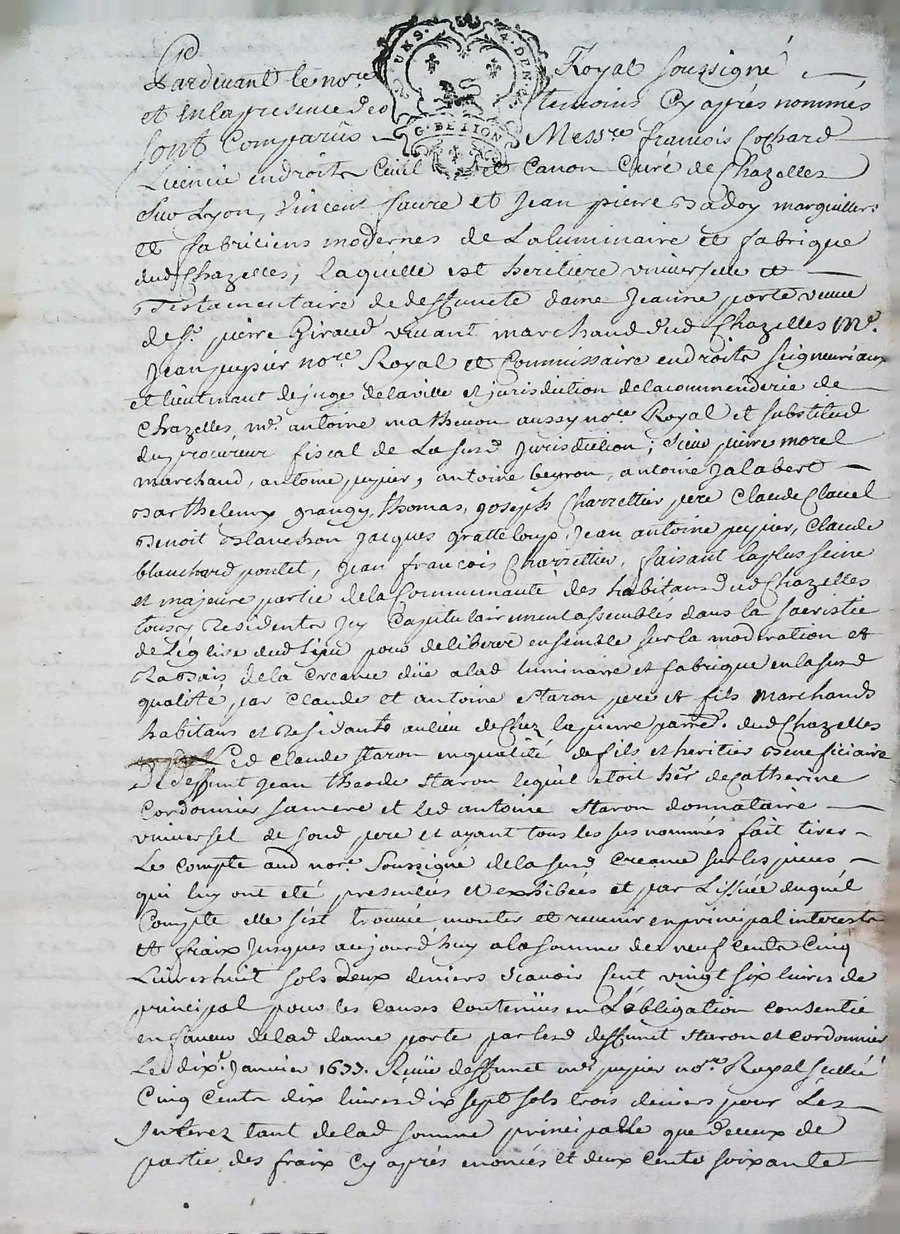 UNS. 4. DEN
G. DE LION
Pardevant le no.re Royal soussigné
et en la presence de temoins cy après nommés
sont Comparus Mess.re francois Cochard
Licencié en droits Civil et Canon Curé de Chazelles
sur Lyon, Vincent faure et Jean pierre Badoy marguilliers
et fabriciens modernes de Laluminaire et fabrique
dud Chazelles, laquelle est heritiere universelle et
Testamentaire de deffuncte dame Jeanne porte veuve
de S.r pierre Giraud vivant marchand dud Chazelles M.e
Jean pupier no.re Royal et Commissaire en droits seigneuriaux
et lieutenant de juge de laville et jurisdiction de lacommenderie de
Chazelles, m.e antoine mathevon aussy no.re Royal et substitud
du procureur fiscal de La susd Jurisdiction; sieur pierre morel
marchand, antoine pupier, antoine beyron, antoine Jalabert
Barthelemy grangy, thomas, joseph Charrettier pere Claude Clavel
Benoit Blanchon jacques gratteloup, Jean antoine pupier, Claude
blanchard pontet, Jean francois Charrettier, faisant laplus seine
et majeure partie de la Communauté des habitans dud Chazelles
tous y Residents Icy Capitulairement assemblés dans la sacristie
de L'église dud Lieu pour deliberer ensemble sur la moderation et
Rabais de la creance düe alad luminaire et fabrique en la susd
qualité, par Claude et antoine Staron pere et fils Marchands
habitans et Residants aulieu de Chez lapierre parre. dud Chazelles
Led Claude staron enqualité de fils et heritier Beneficiaire
De deffunt Jean theode staron lequel etoit her. de Catherine
Cordonnier samere et led antoine staron donnataire
universel de sond pere et ayant tous les sus nommés fait tirer
Le compte aud no.re soussigné de la susd creance sur les pieces
qui luy ont été presentées et exhibées et par Lissüe duquel
Compte elle s'est trouvée monter et revenir en principal interests
et fraix jusques aujourd'huy a la somme de neuf cents Cinq
Livres huit sols deux deniers scavoir Cent vingt six livres de
principal pour les causes contenües en L'obligation consentie
en faveur de lad dame porte par lesd deffunt staron et cordonnier
Le dix.e Janvier 1633. Reçüe deffunct m.e pupier no.re Royal scellé
Cinq cents dix livres dix sept sols trois deniers pour Les
Interez tant de lad somme principalle que d'ceux de
partie des fraix cy après enoncés et deux cents soixante